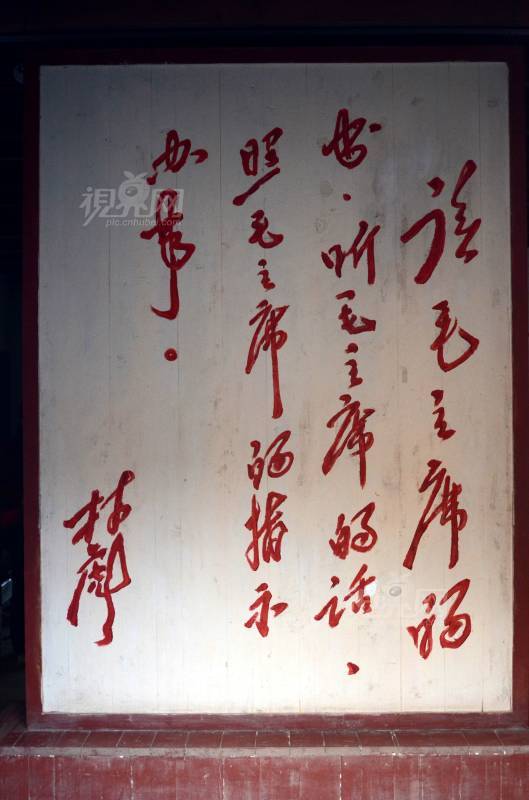 读毛主席的
书、听毛主席的话、
照毛主席的指示
办事。
林彪
視界网
pic.cnhubei.com